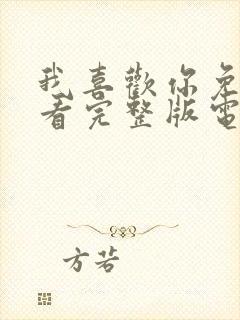 我喜歡你免
看完整版電
方若